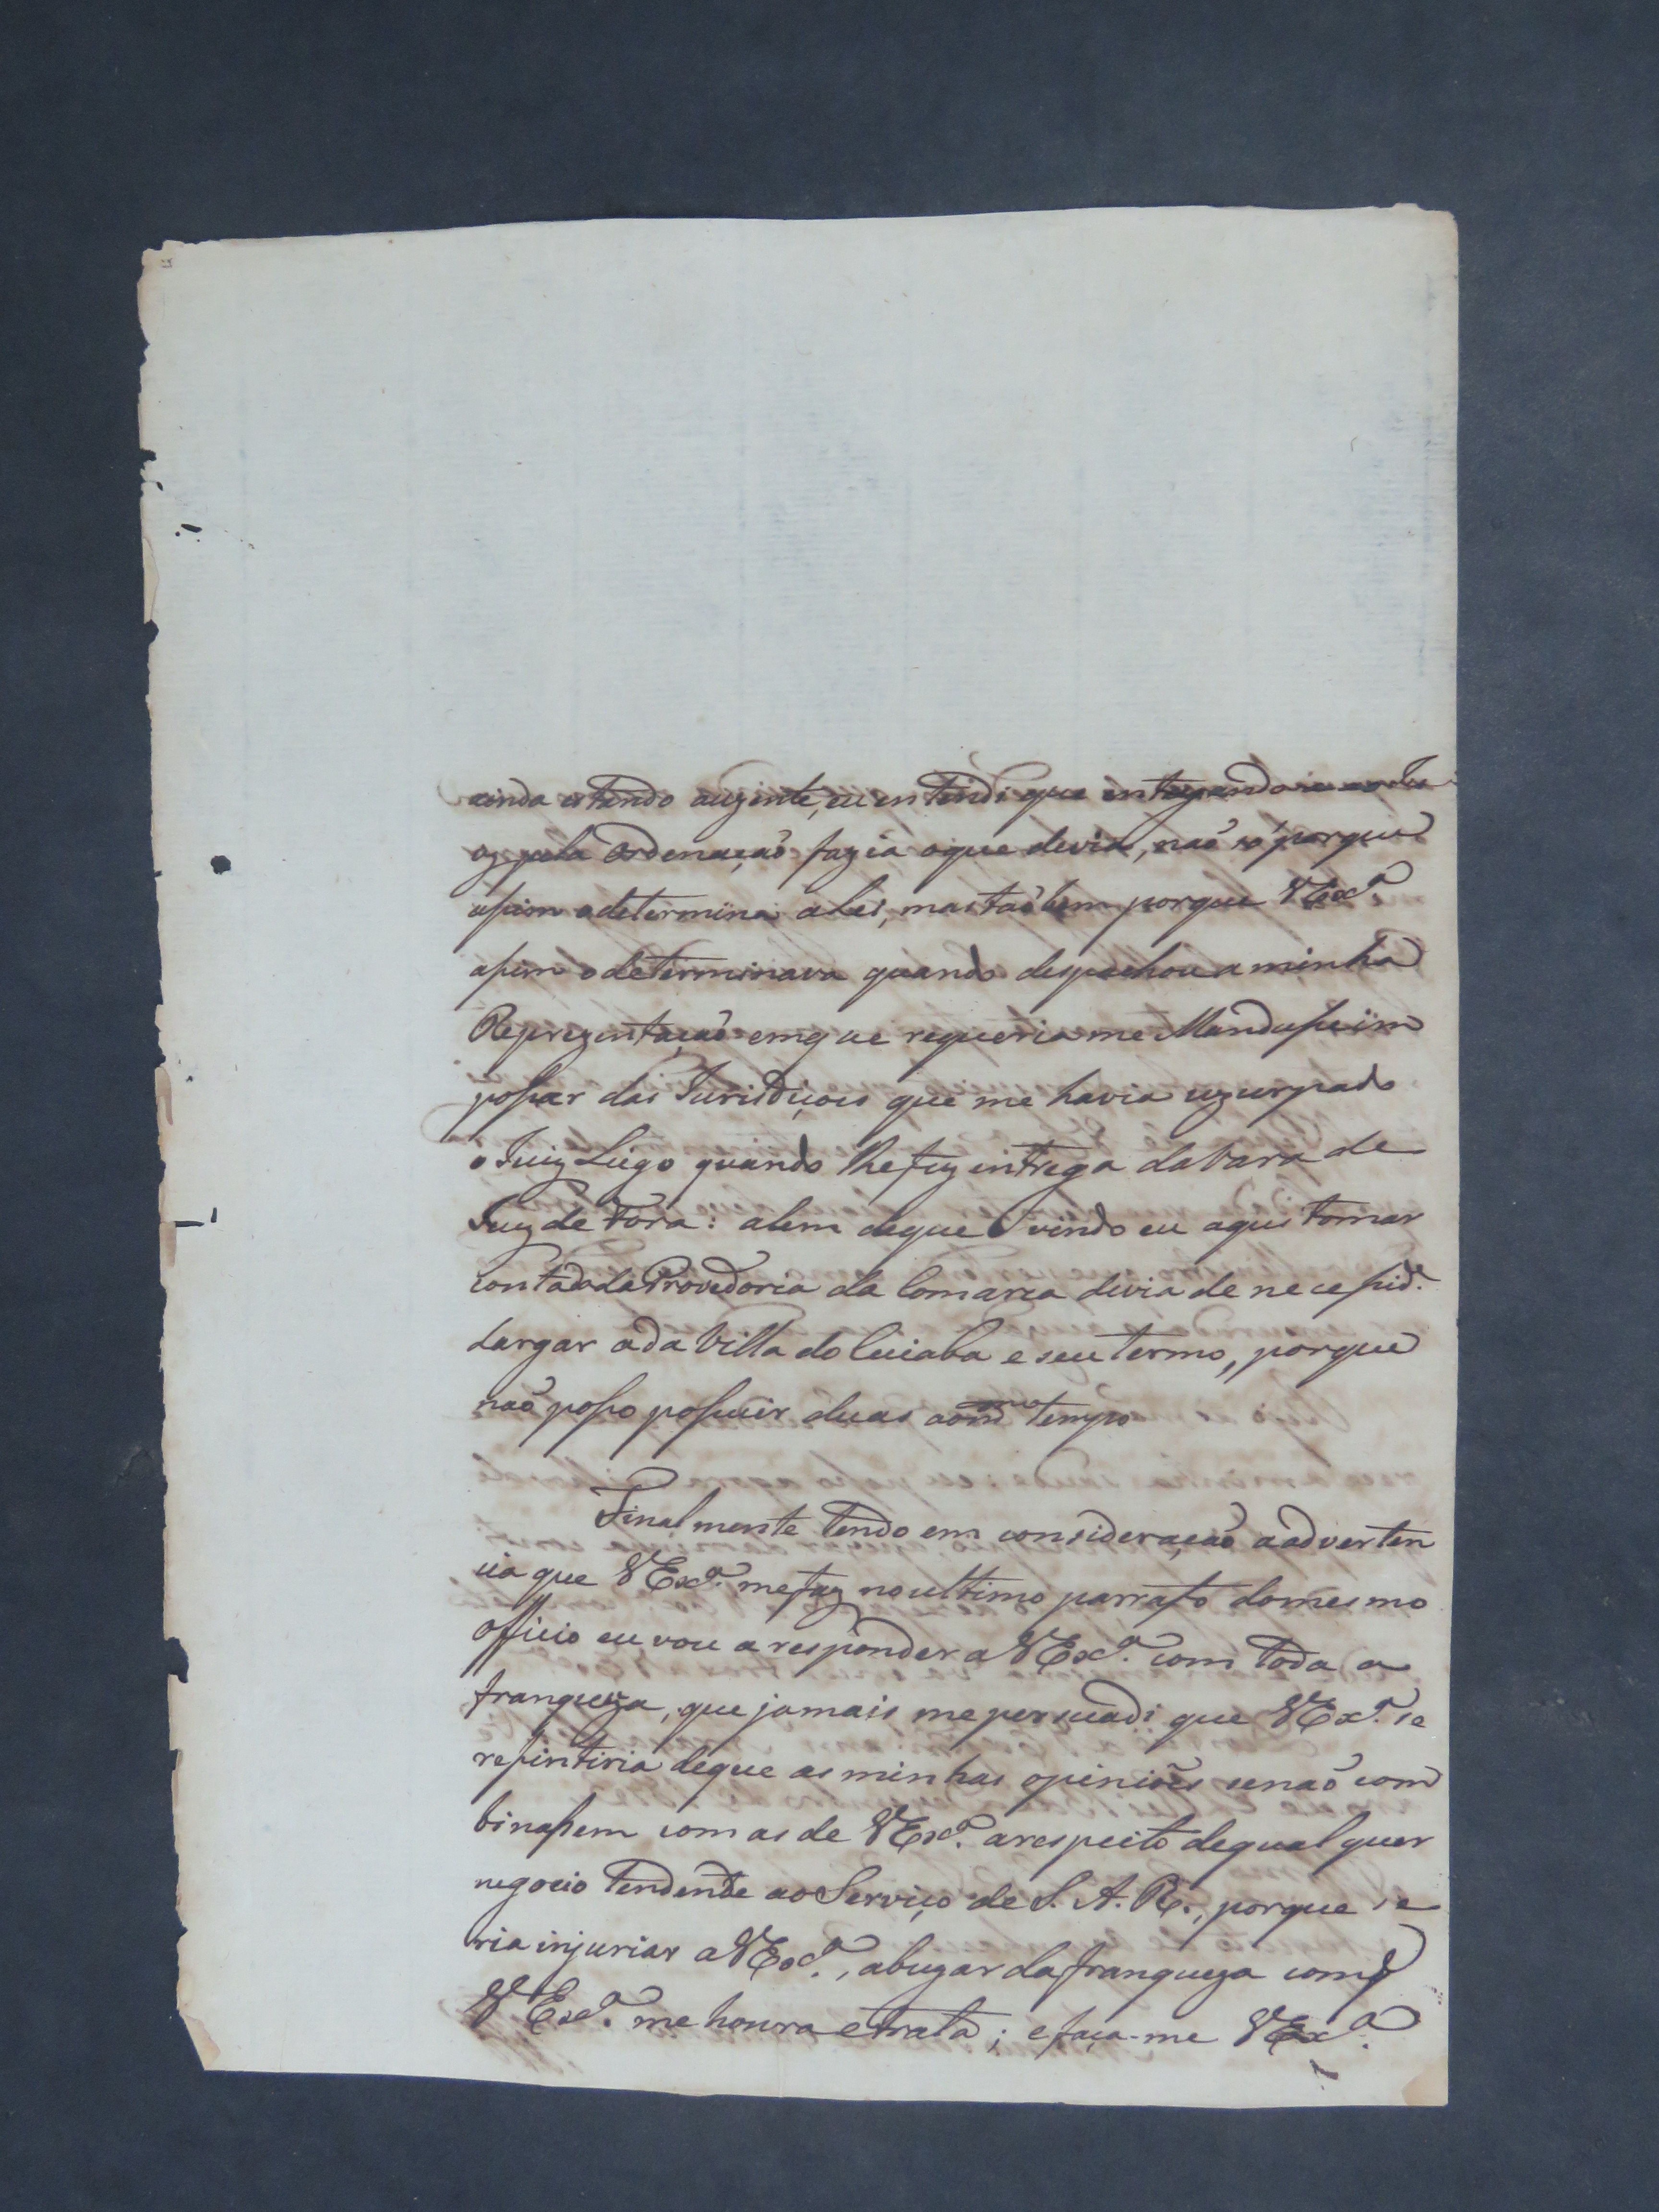 ainda estando auzente, eu entendi que entregando
pela Ordenaçaõ fazia oque devia, naõ só porque
assim odetermina aLei, mas taõbem porque VEx.ª
assim odeterminava quando despachou a minha
Reprezentaçaõ emque requeria me Mandasse im
possar das Jurisdiçoes que me havia uzurpado
o Juiz Leigo quando lhe fiz entrega da vara de
Juiz de Fora: alem deque vindo eu aqui tomar
conta da Provedoria da Comarca devia de necessid.e
Largar a da Villa do Cuiaba e seu termo, porque
naõ posso possuir duas aom.mo tempo
Finalmente tendo em consideraçaõ a adverten
cia que VEx.ª me faz no ultimo parrafo domesmo
Officio eu vou a responder a VEx.ª com toda a
franqueza, que jamais me persuadi que VEx.ª se
resintiria deque as minhas opiniões senaõ com
binassem com as de VEx.ª arespeito dequalquer
negocio tendente ao Serviço de S. A. R., porque se
ria injuriar a VEx.ª, abuzar da franqueza com q
VEx.ª me honra e trata; e faça-me VEx.ª